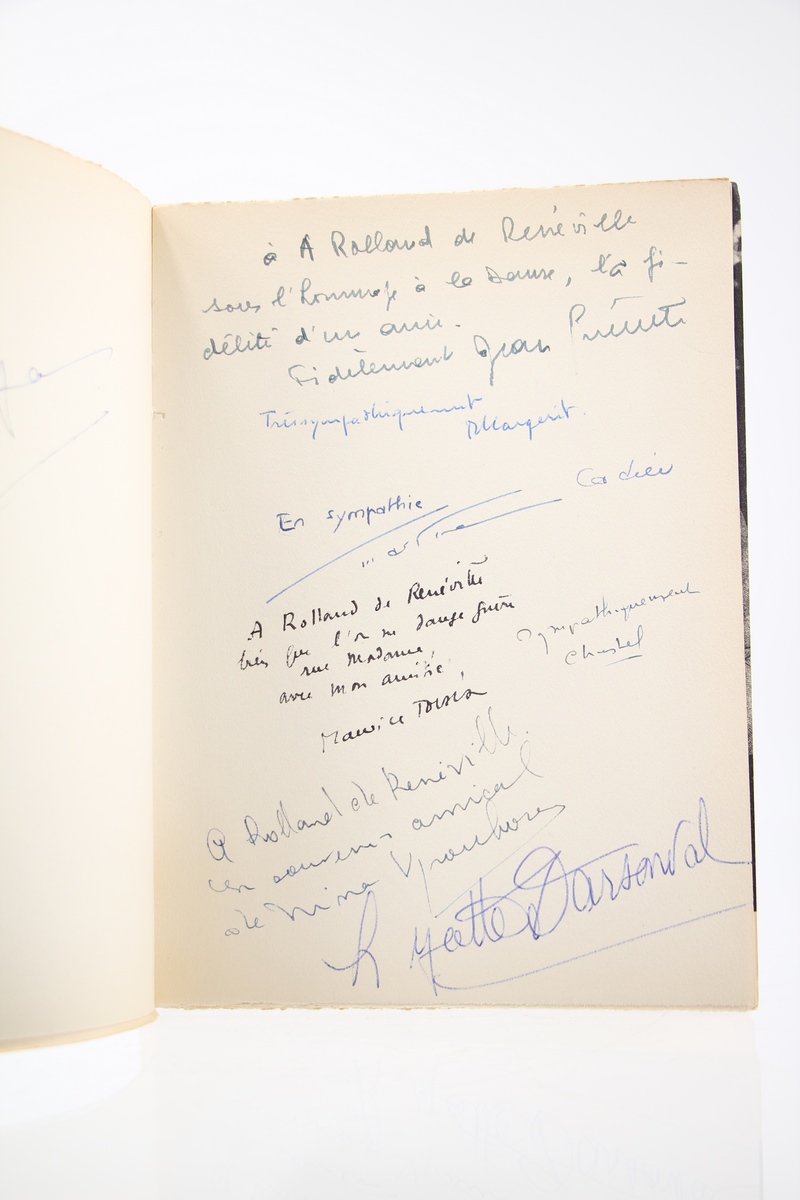 à A Rolland de Renéville
sous l'hommage à la Danse, la fi-
délité d'un ami.
Fidèlement Jean
Très sympathiquement
Margerit.
En sympathie
Cordier
A Rolland de Renéville
bien que l'on ne danse guère
rue Madame,
avec mon amitié,
Maurice Toesca
Sympathiquement
Chastel
A Rolland de Renéville.
en souvenir amical
de Nina Vyroubova
Lycette Darsonval